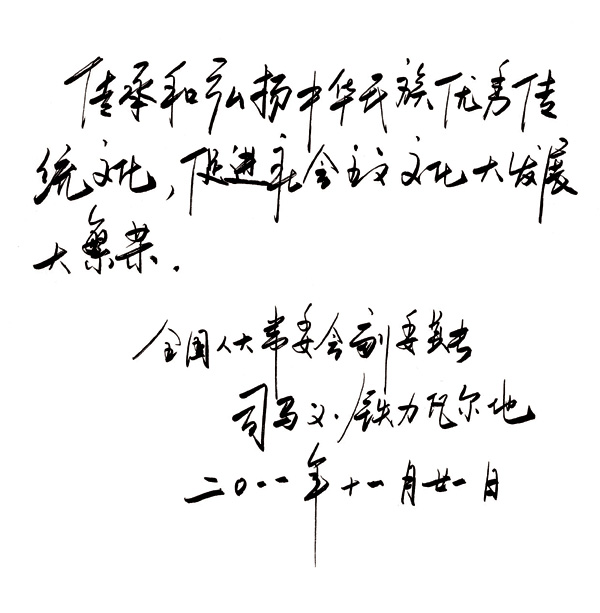 传承和弘扬中华民族优秀传
统文化，促进社会主义文化大发展
大繁荣．
全国人大常委会副委员长
司马义·铁力瓦尔地
二〇一一年十一月廿一日